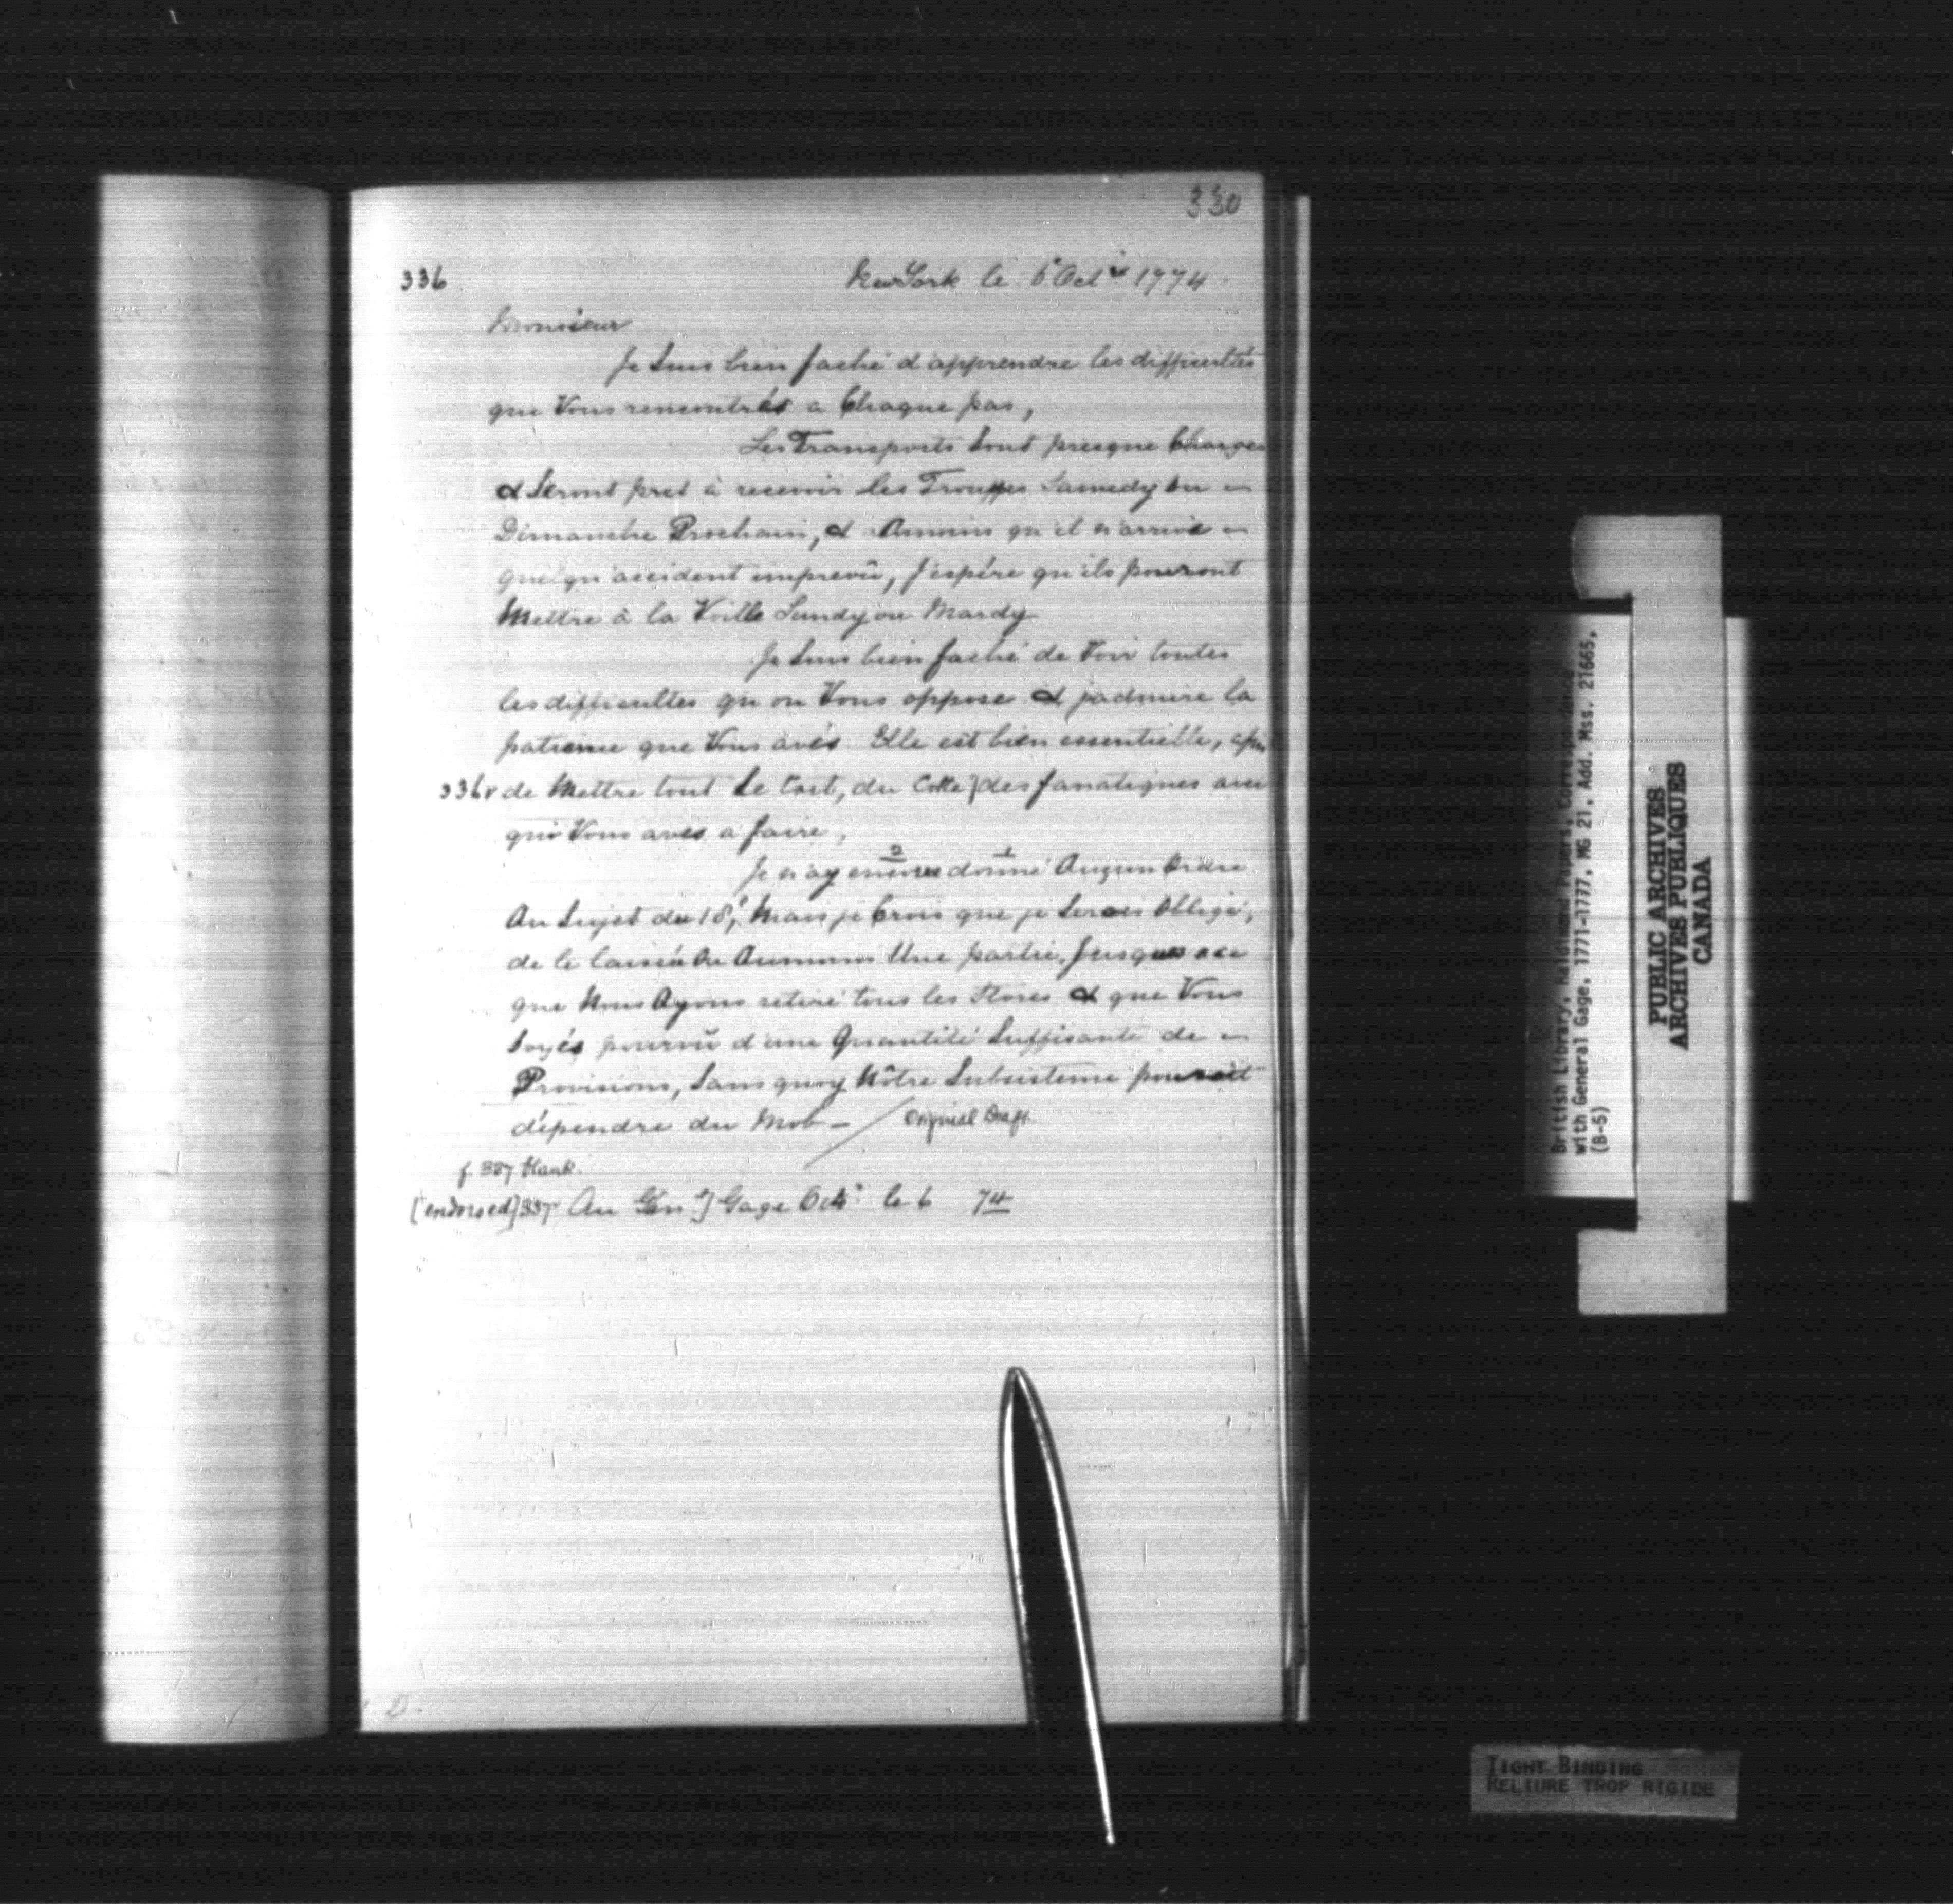 330
336
New York le 6e Octre 1774.
Monsieur
Je Suis bien faché d'apprendre les difficultés
que Vous rencontrés a Chaque pas,
Les Transports Sont presque Charges
& Seront pret à recevoir les Trouppes Samedy ou
Dimanche Prochain, & Amoins qu'il n'arrive
quelqu'accident imprevû, J'espére qu'ils pouront
Mettre à la Voille Lundy ou Mardy
Je Suis bien faché de Voir toutes
les difficultes qu'on Vous oppose & j'admire la
patience que Vous avés. Elle est bien essentielle, afin
336v de Mettre tout Le tort, du Cotte } des fanatiques avec
qui Vous aves a faire,
2 1
Je n'ay encore donné Auqun Ordre
Au Sujet du 18e, Mais je Crois que je Serais Obligé,
de le laissé Ou Aumoins Une partie, Jusques a ce
que Nous Ayons retiré tous les Stores & que Vous
Soyés pourvû d'une Quantité Suffisante de
Provisions, Sans quoy Nôtre Subsistence pourait
dépendre du Mob — / Original Draft.
f. 337 blank.
[endorsed] 337v Au Genl] Gage Octr le 6 74
British Library, Haldimand Papers, Correspondence
with General Gage, 1771-1777, MG 21, Add. Mss. 21665,
(B-5)
PUBLIC ARCHIVES
ARCHIVES PUBLIQUES
CANADA
TIGHT BINDING
RELIURE TROP RIGIDE